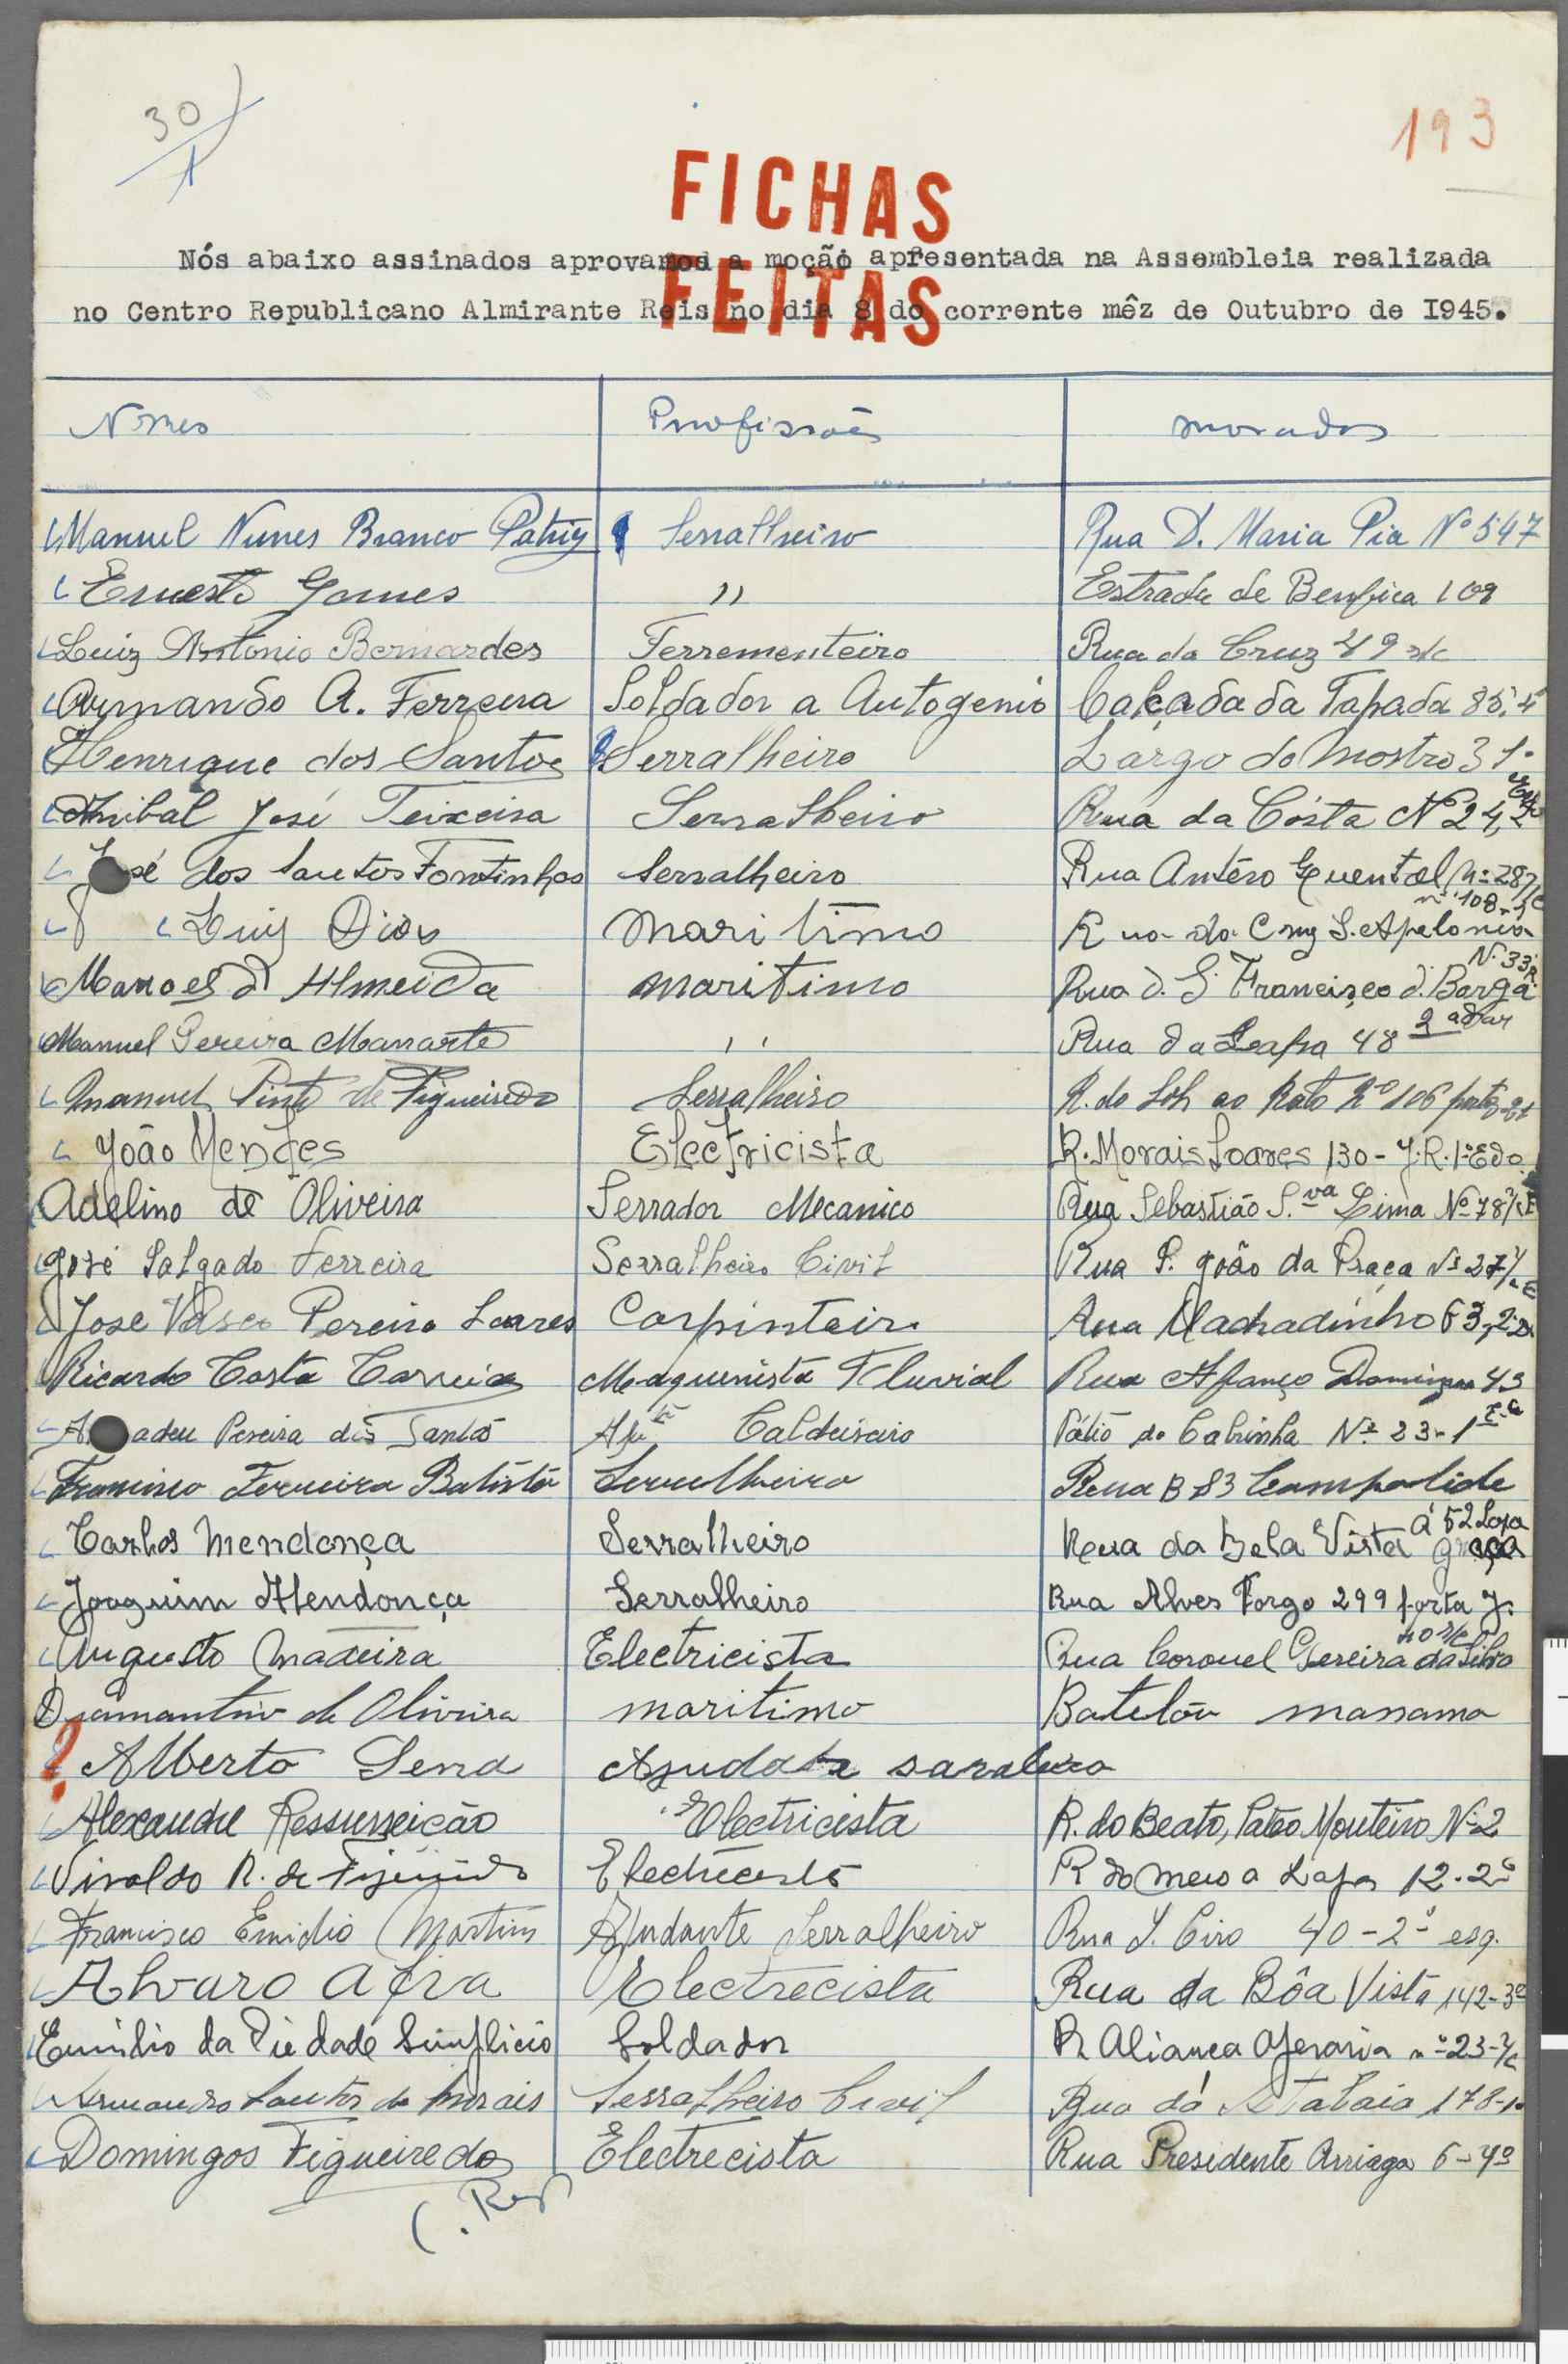 30
1
193
FICHAS
FEITAS
Nós abaixo assinados aprovamos a moção apresentada na Assembleia realizada
no Centro Republicano Almirante Reis no dia 8 do corrente mêz de Outubro de I945.
Nomes Profissões moradas
Manuel Nunes Branco Serralheiro Rua D. Maria Pia Nº 547
Ernesto Gomes " Estrada de Benfica 109
Luiz Antonio Bernardes Ferrementeiro Rua da Cruz 49 r/c
Armando A. Ferreira Soldador a Autogenio Calçada da Tapada 85, 4º
Henrique dos Santos Serralheiro Largo do Mostro 3 1º
Anibal José Teixeira Serralheiro Rua da Costa Nº 24, 2º
José dos Santos Fontinhas Serralheiro Rua Antéro Quental nº 28 r/c
Luiz Dias Maritimo Rua da Cruz S. Apelonia nº 108-1
Manoel d' Almeida maritimo Rua d. S. Francisco d. Borga N. 33
Manuel Pereira Manarte " Rua da Lapa 48 2 adar
Manuel Pinto de Figueiredo Serralheiro R. do Sol ao Rato Nº 106 porta 21
João Mendes Electricista R. Morais Soares 130 - J.R. 1º Edo.
Adelino de Oliveira Serrador Mecanico Rua Sebastião S.va Lima Nº 78 r/c E
José Salgado Ferreira Serralheiro Civil Rua S. João da Praça Nº 27
Jose Vasco Pereira Soares Carpinteiro Rua Machadinho 63, 2º D
Ricardo Costa Correia Maquenista Fluvial Rua Afonço Domingues 43
Amadeu Pereira dos Santos Ajte Caldeireiro Pátio do Cabrinha Nº 23-1º
Francisco Ferreira Batista Serralheiro Rua B 83 Campolide
Carlos Mendonça Serralheiro Rua da Bela Vista á Graça 52 Loja
Joaquim Mendonça Serralheiro Rua Alves Torgo 299 porta J.
Augusto Madeira Electricista Rua Coronel Pereira da Silva 40 r/c
Diamantino de Oliveira maritimo Batelão manama
? Alberto Sena Ajudate saraleiro
Alexandre Ressurreição Electricista R. do Beato, Pateo Monteiro Nº 2
Nivaldo R. de Electricista R do Meio a Lapa 12-2º
Francisco Emidio Martins Ajudante Serralheiro Rua S. Ciro 40-2º esq.
Alvaro Afra Electrecista Rua da Bôa Vista 142-3º
Emidio da Piedade Simplicio Soldador R Aliança Operaria nº 23-r/c
Armando Santos de Morais Serralheiro Civil Rua da Atalaia 178-1º
Domingos Figueiredo Electrecista Rua Presidente Arriaga 6-4º